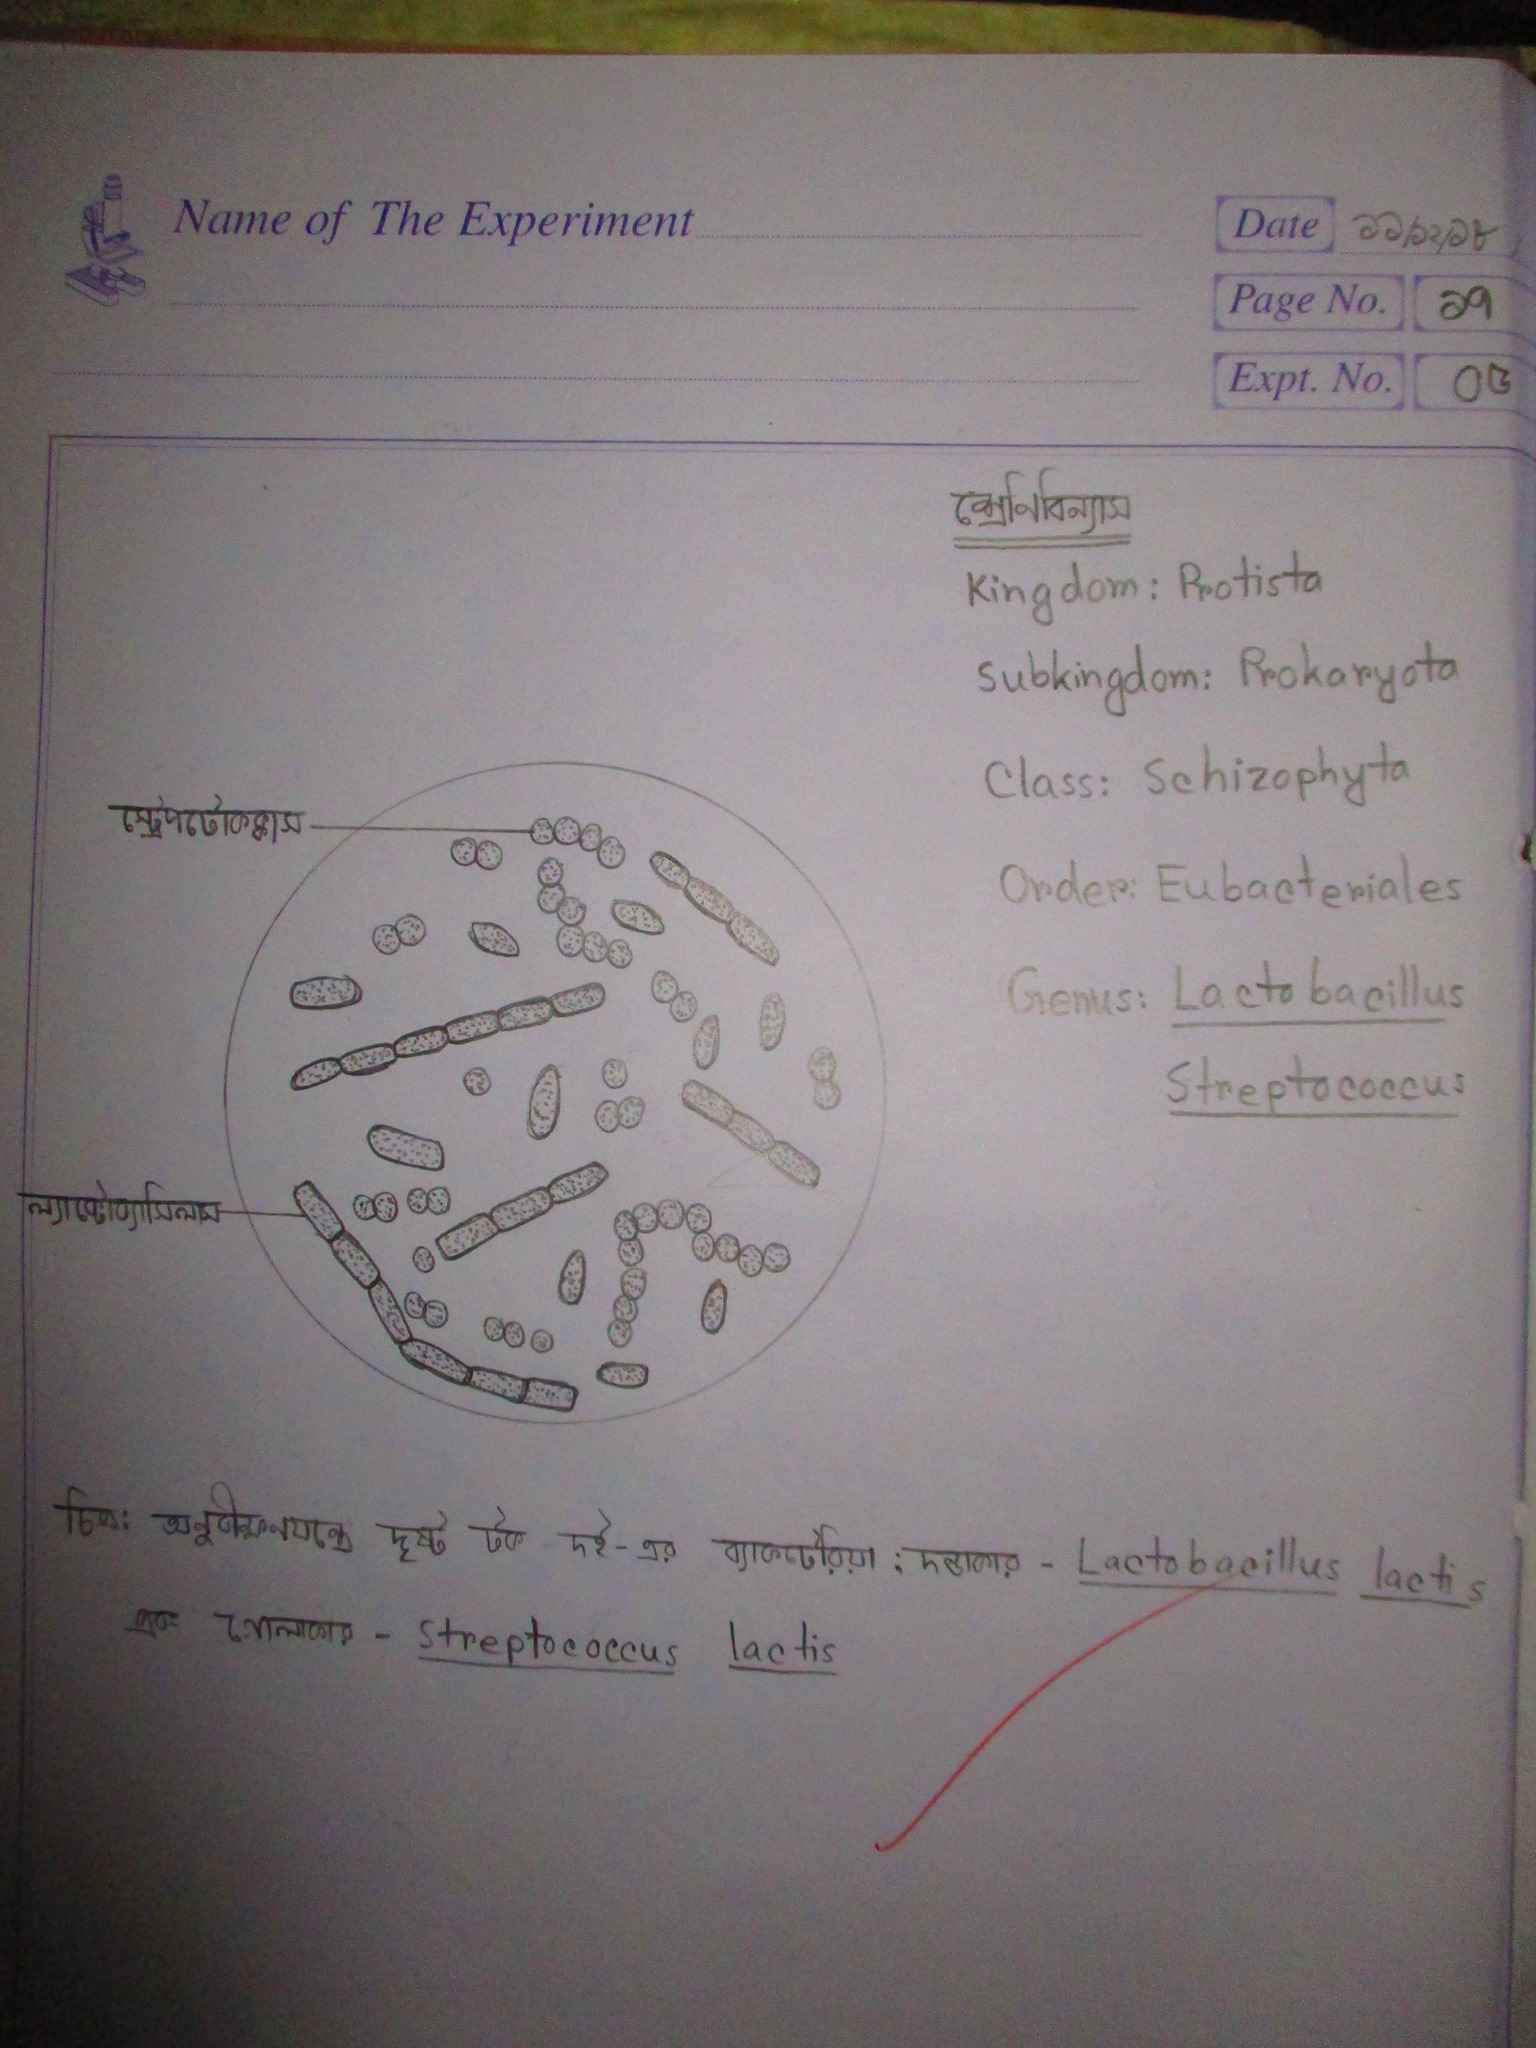 Name of The Experiment
Date ১১/১২/১৮
Page No. ১৭
Expt. No. ০৫
শ্রেনিবিন্যাস
Kingdom: Protista
Subkingdom: Prokaryota
Class: Schizophyta
Order: Eubacteriales
Genus: Lactobacillus
Streptococcus
স্ট্রেপটোকক্কাস
ল্যাক্টোব্যাসিলাস
চিত্র: অনুবীক্ষনযন্ত্রে দৃষ্ট টক দই-এর ব্যাকটেরিয়া ; দন্ডাকার - Lactobacillus lactis
এবং গোলাকার - Streptococcus lactis